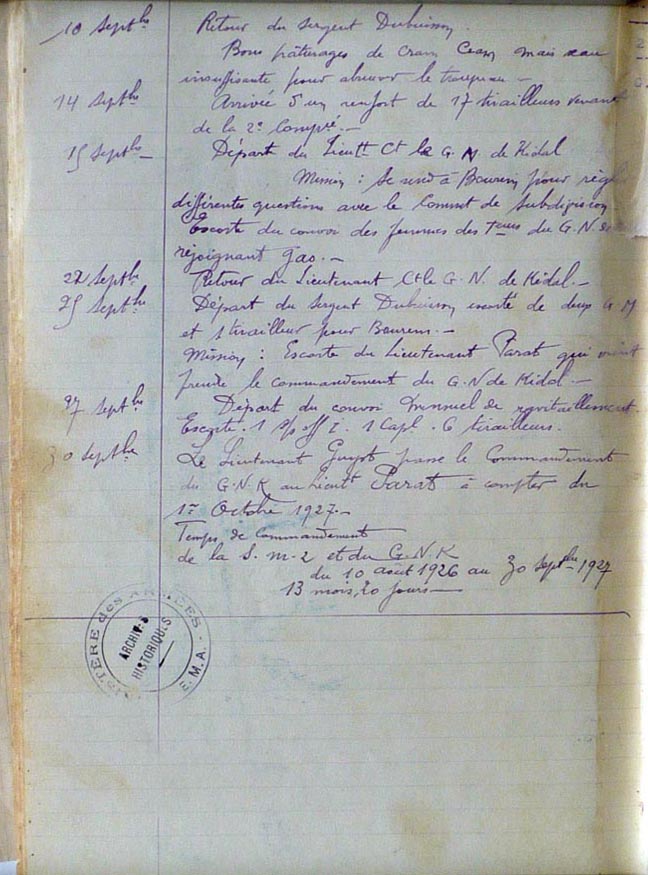 10 Septbre Retour du Sergent Dubuisson.
Bons pâturages de Cram Cram mais eau
insuffisante pour abreuver le troupeau -
14 Septbre Arrivée d'un renfort de 17 tirailleurs venant
de la 2e Compie. -
15 Septbre - Départ du Lieutt Ct le G. N. de Kidal
Mission : Se rend à Bourem pour régl
différentes questions avec le Commt de Subdivision
Escorte du convoi des femmes des Teurs du G.N.
rejoignant Gao. -
22 Septbre Retour du Lieutenant Ct le G. N. de Kidal. -
25 Septbre Départ du Sergent Dubuisson escorté de deux G. M.
et 1 tirailleur pour Bourem. -
Mission : Escorte du Lieutenant Parat qui vient
prendre le commandement du G.N de Kidal -
27 Septbre Départ du convoi mensuel de ravitaillement.
Escorte. 1 S/off I. 1 Capl. 6 tirailleurs.
30 Septbre Le Lieutenant Guyot passe le Commandement
du G.N.K au Lieutt Parat à compter du
1er Octobre 1927. -
Temps de Commandement
de la S. M. 2 et du G.N.K
du 10 août 1926 au 30 Septbre 1927
13 mois, 20 jours -
MINISTÈRE des ARMÉES · E.M.A. ·
ARCHIVES
HISTORIQUES